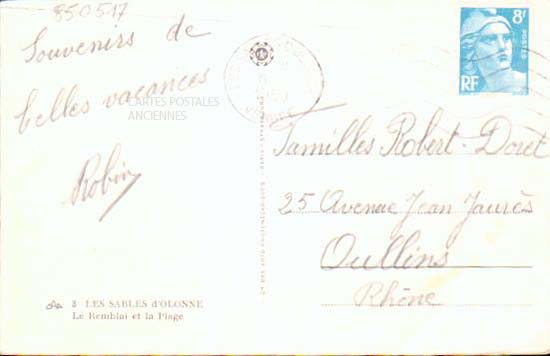 850517
Souvenirs de
belles vacances
CARTES POSTALES
ANCIENNES
Robin
8F
POSTES
RF
Familles Robert-Doret
25 Avenue Jean Jaurès
Oullins
Rhône
3 LES SABLES d'OLONNE
Le Remblai et la Plage